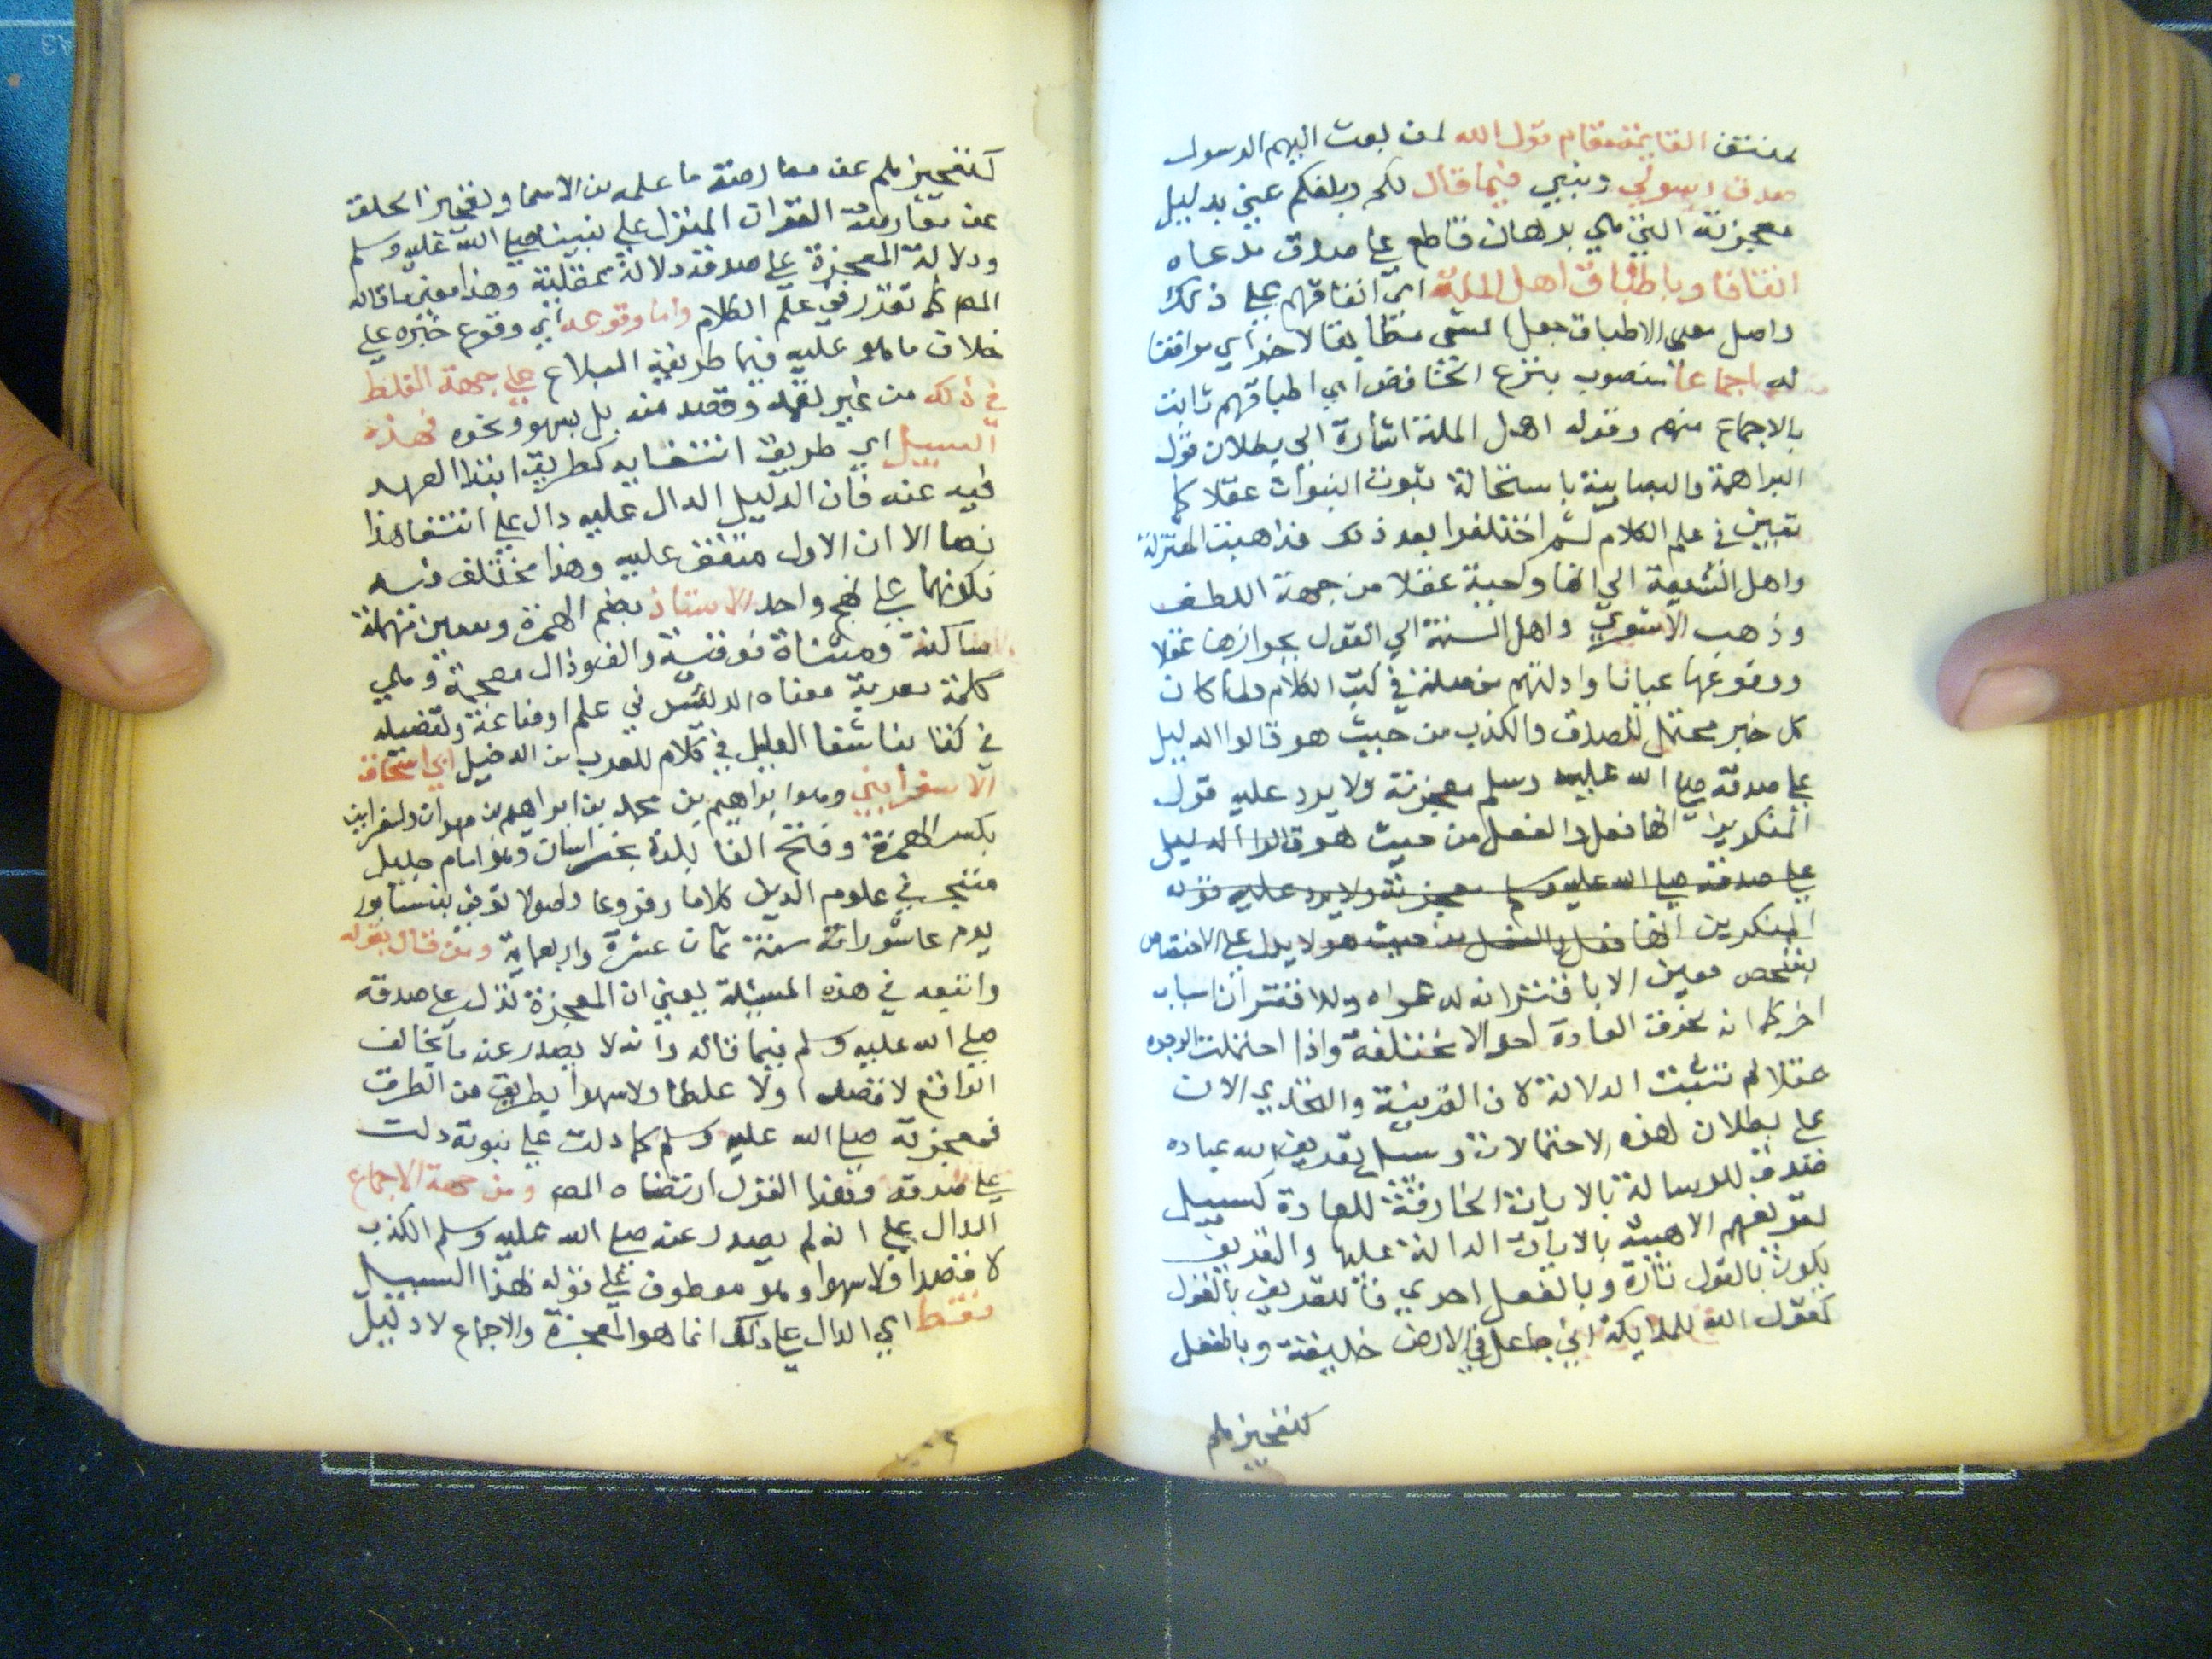 القايمة مقام قول الله لمن بعث اليهم الرسول
صدق رسولي ونبيي فيما قال لكم وبلغكم عني بدليل
معجزته التي هي برهان قاطع على صدق مدعاه
اتفاقا وباطباق اهل الملة اي اتفاقهم على ذلك
واصل معنى الاطباق جعل الشي مطابقا لاخر اي موافقا
له اجماعا منصوب بنزع الخافض اي اطباقهم ثابت
بالاجماع منهم وقوله اهل الملة اشارة الى بطلان قول
البراهمة والصابية باستحالة ثبوت النبوات عقلا كما
تبين في علم الكلام ثم اختلفوا بعد ذلك فذهبت المعتزلة
واهل الشيعة الى انها واجبة عقلا من جهة اللطف
وذهب الاشعري واهل السنة الى القول بجوازها عقلا
ووقوعها عيانا وادلتهم مفصلة في كتب الكلام ولما كان
كل خبر محتمل للصدق والكذب من حيث هو قالوا الدليل
على صدقه صلى الله عليه وسلم معجزته ولا يرد عليه قول
المنكرين انها فعل والفعل من حيث هو قالوا الدليل
على صدقه صلى الله عليه وسلم معجزته ولا يرد عليه قوله
المنكرين انها فعل والفعل من حيث هو لا يدل على الاختصاص
بشخص معين الا باقترانه لدعواه وللاقتران اسباب
اخر كما انه لخرق العادة احوالا مختلفة واذا احتملت الوجوه
عقلا لم تثبت الدلالة لان القرينة والتحدي الان
على بطلان هذه الاحتمالات وسبيل تعريف الله عباده
صدق للرسالة بالايات الخارقة للعادة كسبيل
تعريفهم الاهيته بالايات الدالة عليها والتعريف
يكون بالقول تارة وبالفعل اخرى فالتعريف بالقول
كقول الله للملايكة اني جاعل في الارض خليفة وبالفعل
كتعجيزهم
كتعجيزهم عن معارضة ما علمه من الاسما وتعجيز الخلق
عن معارضة القران المنزل على نبينا صلى الله عليه وسلم
ودلالة المعجزة على صدقه دلالة عقلية وهذا معنى ما قاله
المص كما تقرر في علم الكلام واما وقوعه اي وقوع خبره على
خلاف ما هو عليه فيما طريقه البلاغ على جهة الغلط
في ذلك من غير تعمد وقصد منه بل بسهو ونحوه فهذه
السبيل اي طريق انتفايه كطريق انتفا العمد
فيه عنه فان الدليل الدال عليه دال على انتفا هذا
ايضا الا ان الاول متفق عليه وهذا مختلف فيه
فكونهما على نهج واحد الاستاذ بضم الهمزة وسين مهملة
ساكنة ومثناة فوقية والف وذال معجمة وهي
كلمة معربة معناه الرئيس في علم او صناعة وتفصيله
في كتابنا شفا الغليل في كلام العرب من الدخيل ابي اسحاق
الاسفرايني وهو ابراهيم بن محمد بن ابراهيم بن مهران واسفراين
بكسر الهمزة وفتح الفا بلدة بخراسان وهو امام جليل
متبحر في علوم الدين كلاما وفروعا واصولا توفي بنيسابور
يوم عاشورا سنة ثمان عشرة واربعماية ومن قال بقوله
واتبعه في هذه المسئلة يعني ان المعجزة تدل على صدقه
صلى الله عليه وسلم فيما قاله وانه لا يصدر عنه ما يخالف
الواقع لا قصدا ولا غلطا ولا سهوا بطريق من الطرق
فمعجزته صلى الله عليه وسلم كما دلت على نبوته دلت
على صدقه وهذا القول ارتضاه المص ومن جهة الاجماع
الدال على انه لم يصدر عنه صلى الله عليه وسلم الكذب
لا قصدا ولا سهوا وهو معطوف على قوله فهذا السبيل
فقط اي الدال على ذلك انما هو المعجزة والاجماع لا دليل